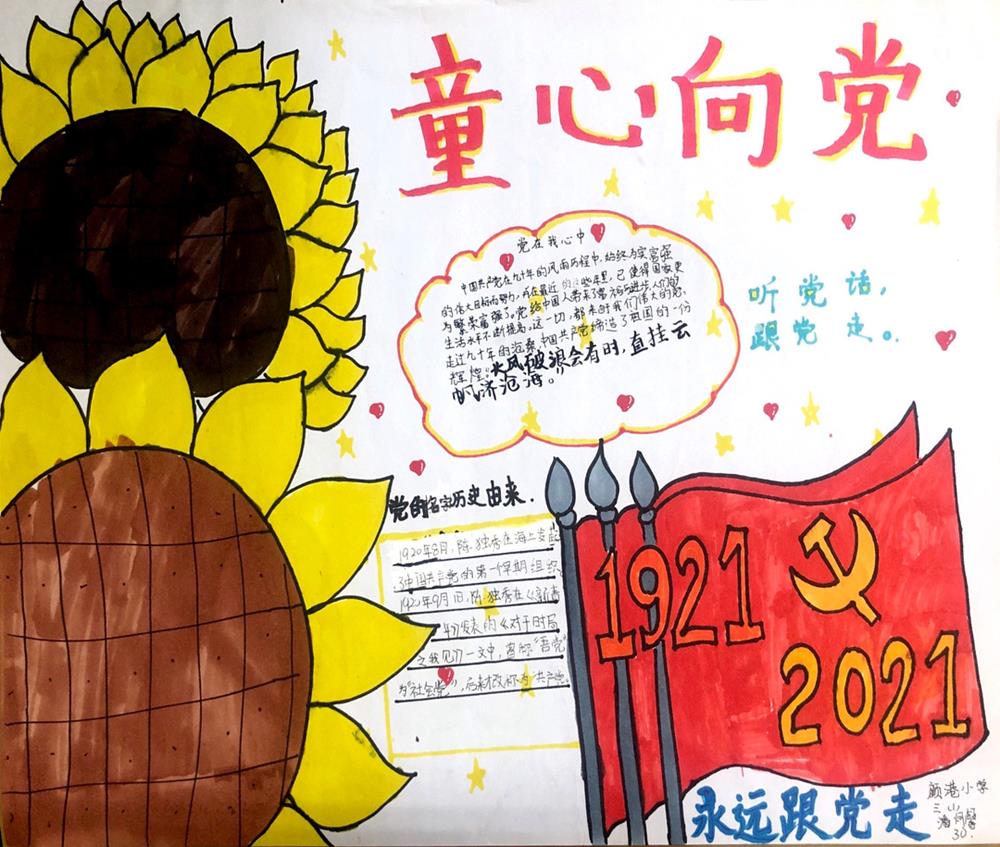 童心向党
党在我心中
中国共产党在九十年的风雨历程中,始终为实富强
的伟大目标而努力,而在最近的这些年里,已使得国家更
为繁荣富强了。党给中国人带来了幸福与进步,人们的
生活水平不断提高,这一切,都来时我们伟大的党,
走过九十年的沧桑,中国共产党缔造了祖国的一份
辉煌。"大风破浪会有时,直挂云
帆济沧海。"
听党话,
跟党走。
党的名字历史由来.
1920年8月,陈独秀在海上发起
了中国共产党的第一个早期组织
192年9月1日,陈独秀在《新青
年》发表的《对于时局
之我见》一文中,曾称"吾党"
为"社会党",后来才改称为共产党.
1921
2021
永远跟党走
颜港小学
三
30.